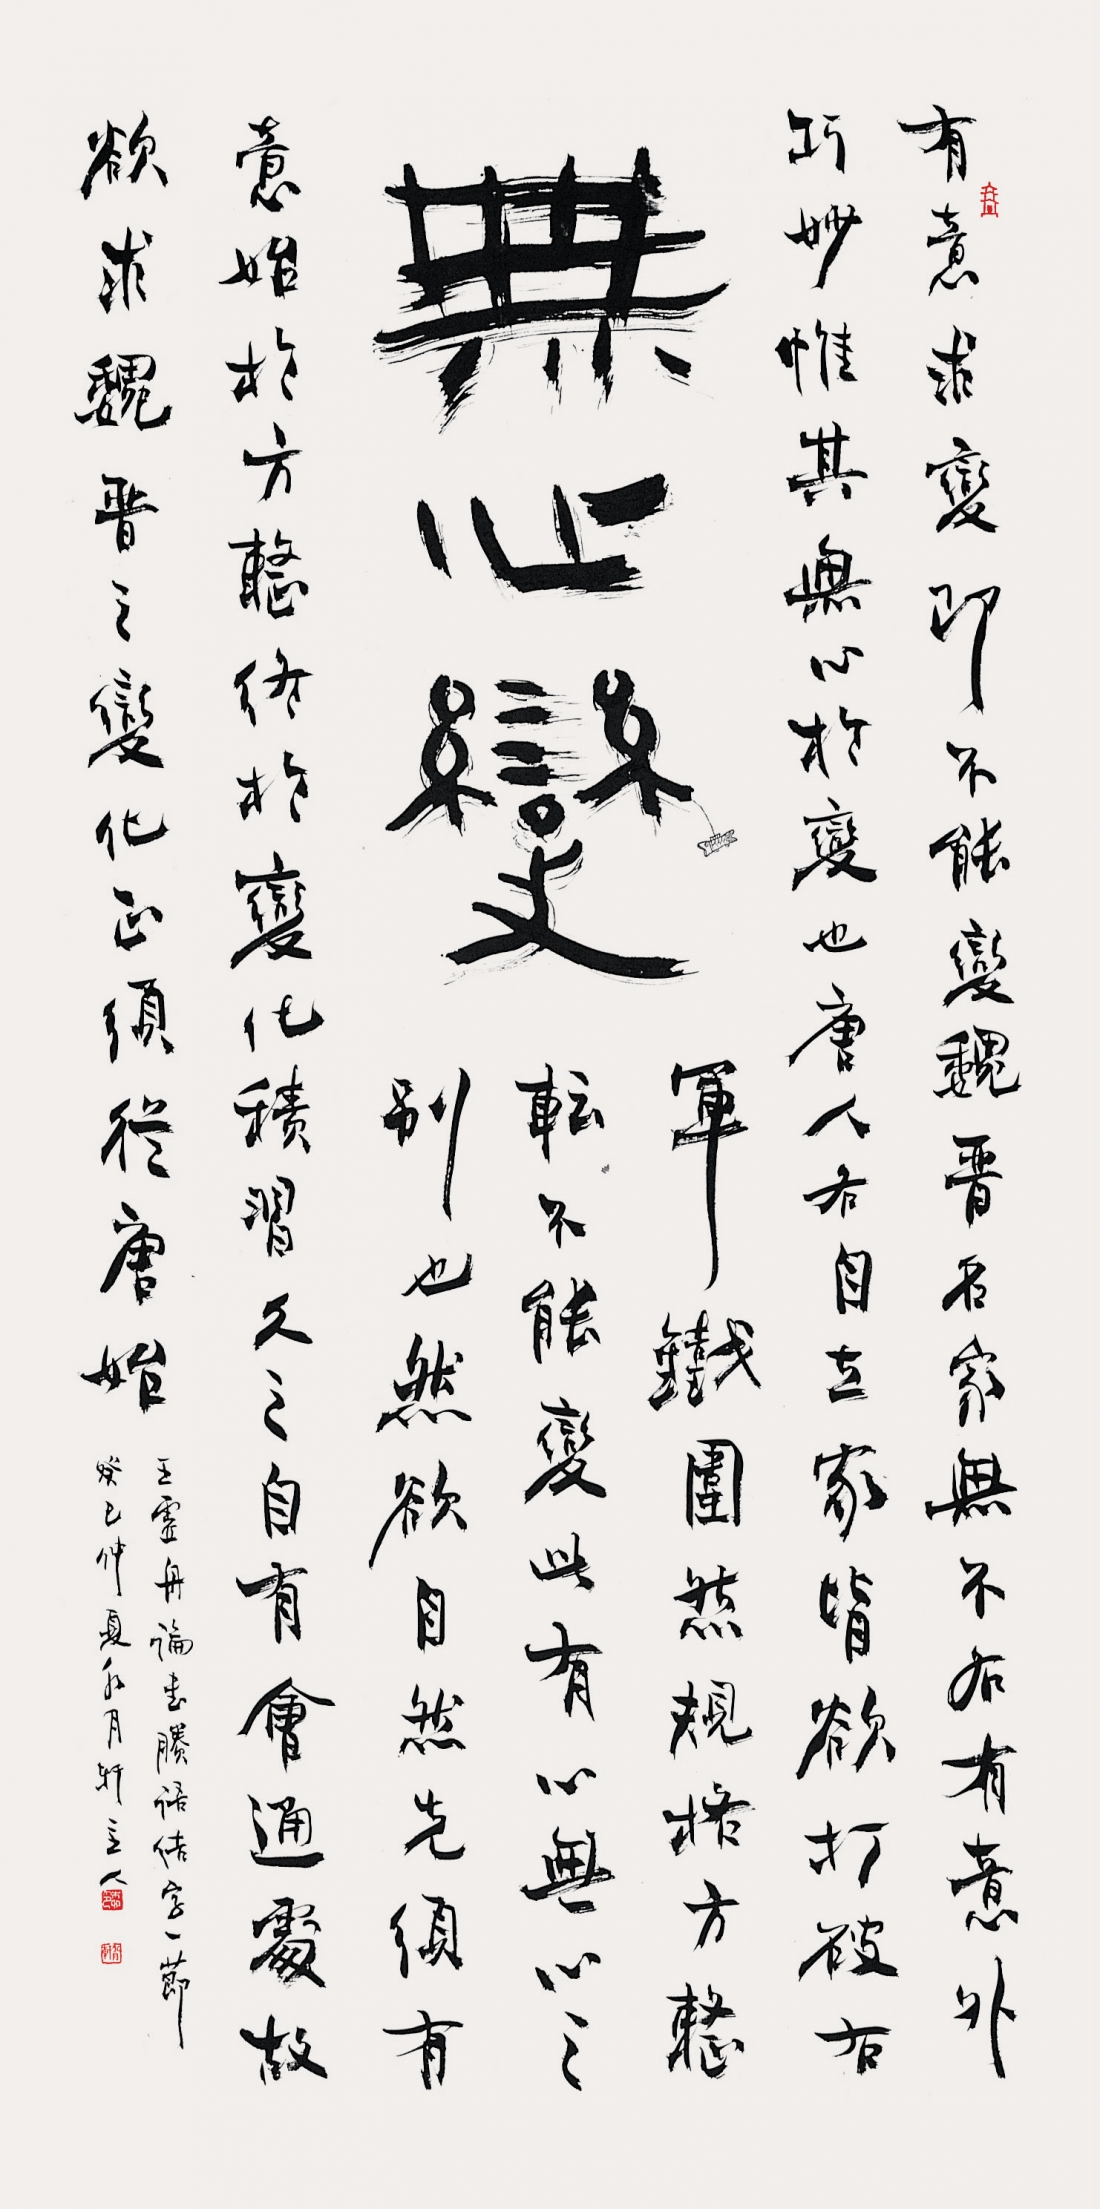 有意求變即不能變魏晉名家無不各有意外
巧妙惟其無心於變也唐人各自立家皆欲打破右
無心變
軍鐵圍然規格方整
転不能變此有心無心之
別也然欲自然先須有
意始於方整終於變化積習久之自有會通處故
欲求魏晉之變化正須從唐始
王虛舟論書賸語結字一節
癸巳仲夏水月軒主人